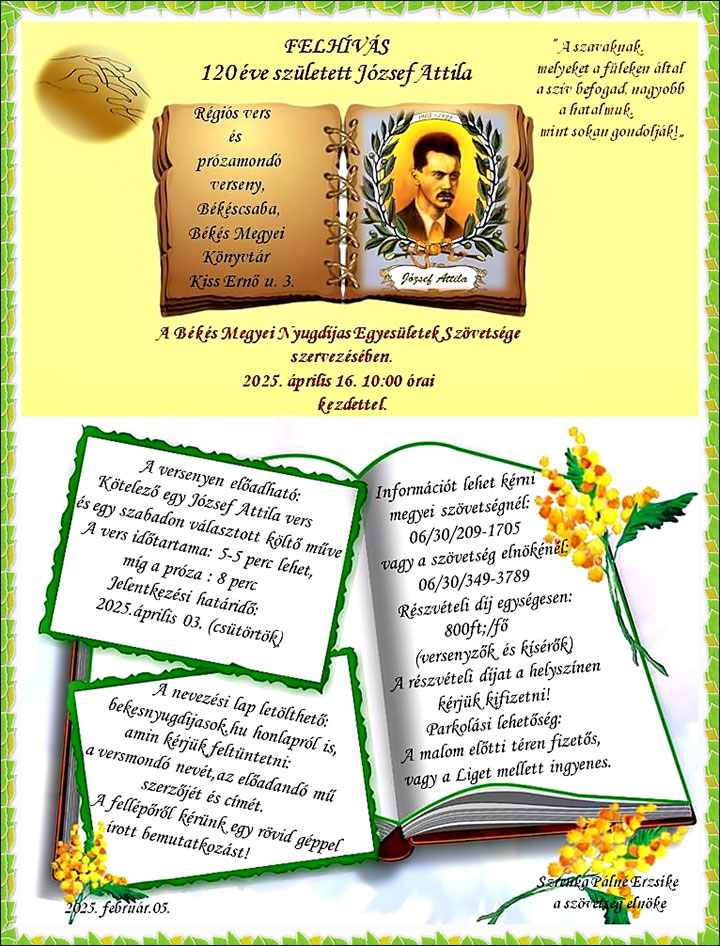 FELHÍVÁS
120 éve született József Attila
"A szavaknak,
melyeket a füleken által
a szív befogad, nagyobb
a hatalmuk,
mint sokan gondolják!„
Régiós vers
és
prózamondó
verseny,
Békéscsaba,
Békés Megyei
Könyvtár
Kiss Ernő u. 3.
1905 - 1937
József Attila
A Békés Megyei Nyugdíjas Egyesületek Szövetsége
szervezésében.
2025. április 16. 10:00 órai
kezdettel.
A versenyen előadható:
Kötelező egy József Attila vers
és egy szabadon választott költő műve
A vers időtartama: 5-5 perc lehet,
míg a próza : 8 perc
Jelentkezési határidő:
2025.április 03. (csütörtök)
A nevezési lap letölthető:
bekesnyugdijasok.hu honlapról is,
amin kérjük feltüntetni:
a versmondó nevét,az előadandó mű
szerzőjét és címét.
A fellépőről kérünk egy rövid géppel
írott bemutatkozást!
Információt lehet kérni
megyei szövetségnél:
06/30/209-1705
vagy a szövetség elnökénél:
06/30/349-3789
Részvételi díj egységesen:
800ft;/fő
(versenyzők és kísérők)
A részvételi díjat a helyszínen
kérjük kifizetni!
Parkolási lehetőség:
A malom előtti téren fizetős,
vagy a Liget mellett ingyenes.
2025. február.05.
Szrenka Pálné Erzsike
a szövetség elnöke